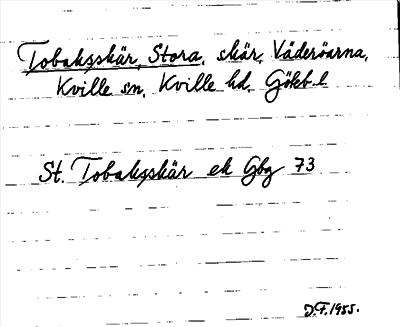 Tobaksskär, Stora, skär, Väderöarna,
Kville sn, Kville hd, Göteb. l.
St. Tobaksskär ek Gbg 73
D.F. 1955.